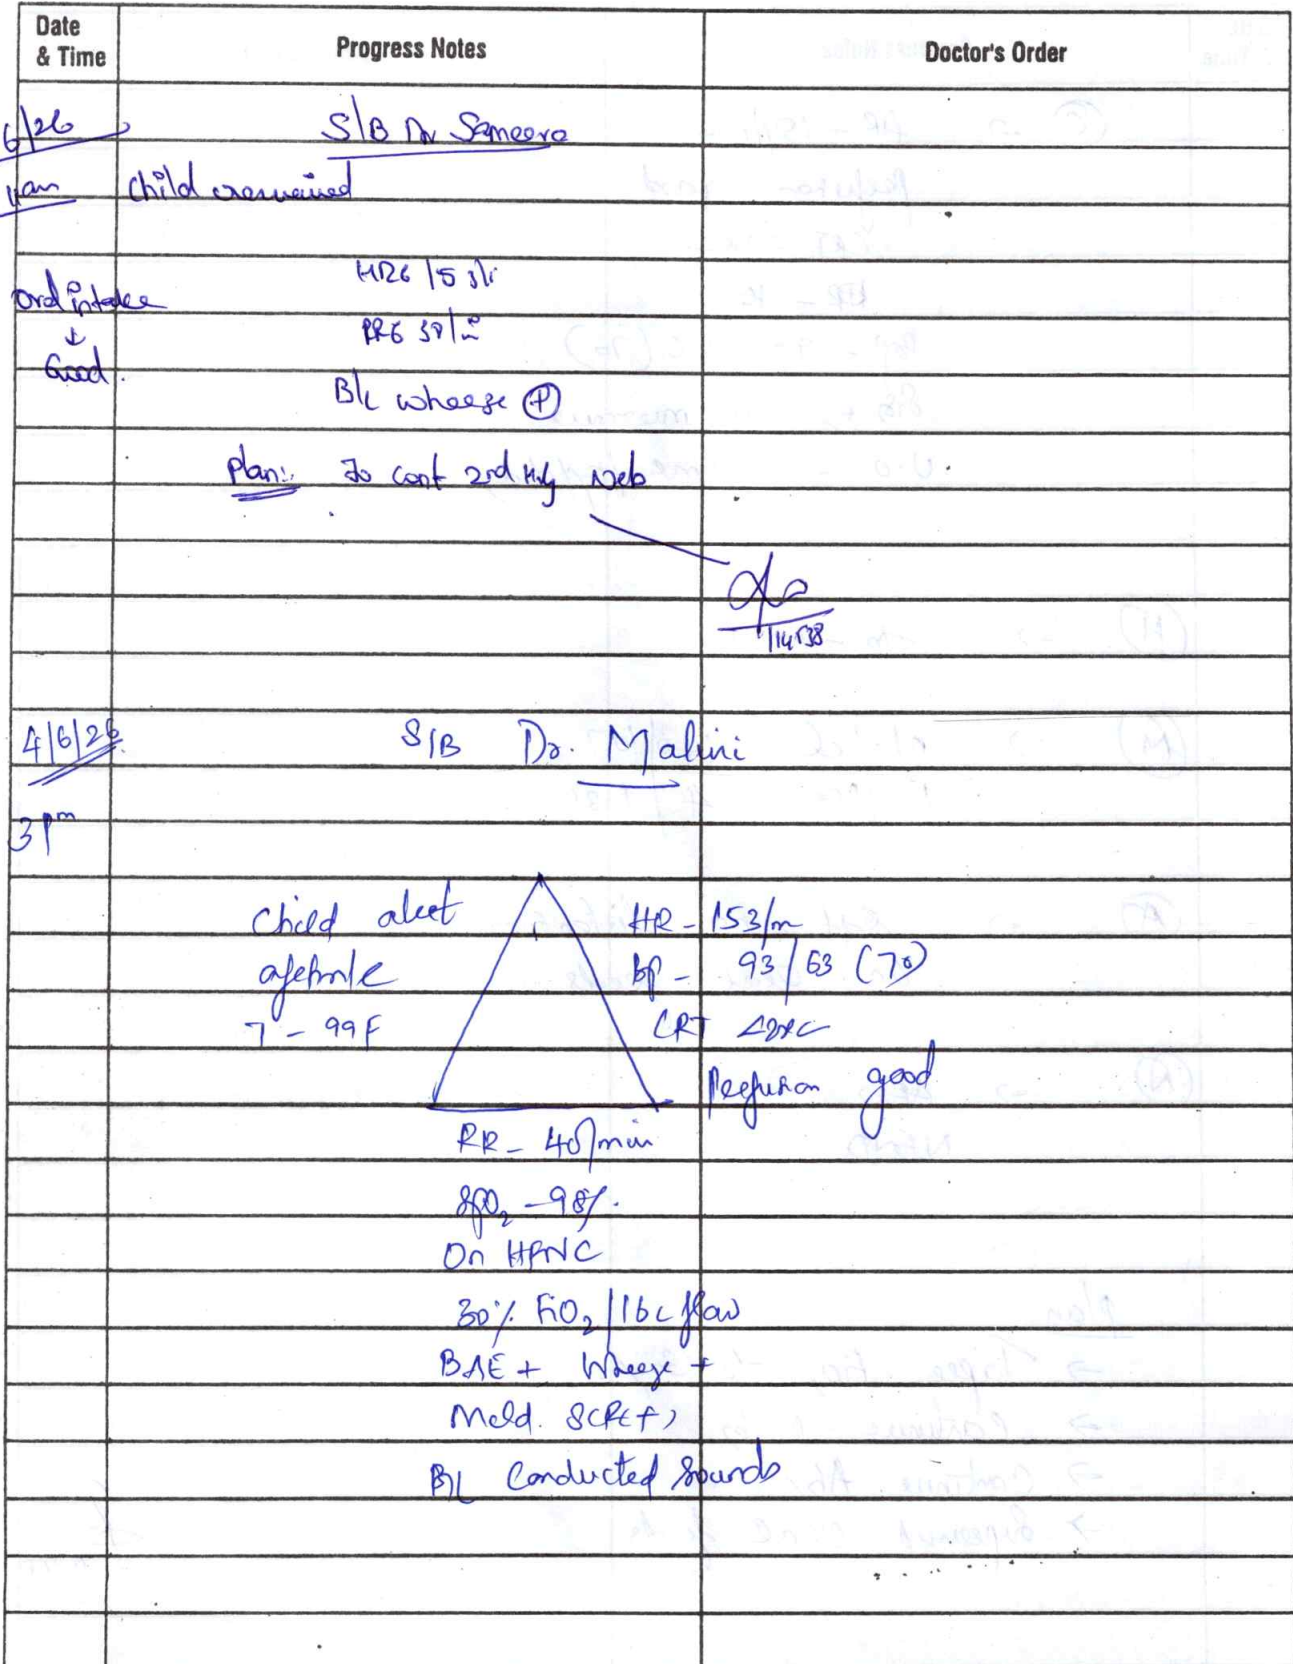 Date & Time
Progress Notes
Doctor's Order
6/26
S/B Dr Sameera
11am
Child examined
Oral intake
↓
Good.
HR 153/
RR 38/m
B/L wheeze ⊕
Plan: To cont 2nd Hrly Neb
4/6/26
S/B Dr. Malini
3pm
Child alert
afebrile
T - 99F
HR - 153/m
BP - 93/63 (70)
CRT <2sec
Perfusion good
RR - 40/min
SPO2 - 98%.
On HFNC
30% FiO2/ flow
BAE + Wheeze +
Mild. SCR(+)
B/L Conducted Sounds